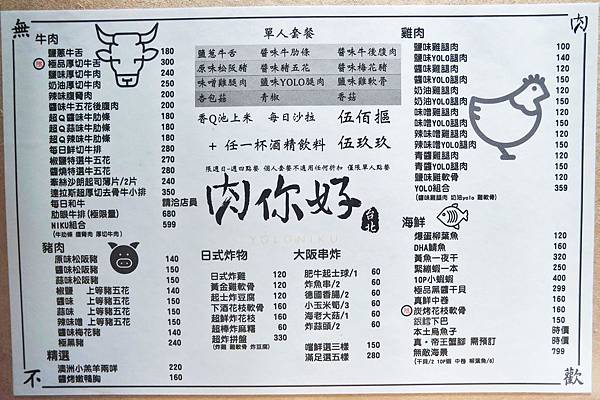 無
肉
不
歡
牛肉
鹽蔥牛舌 180
極品厚切牛舌 300
鹽味厚切牛肉 240
奶油厚切牛肉 250
辣味腹脅肉 200
醬味牛五花後腹肉 200
超Q鹽味牛肋條 200
超Q醬味牛肋條 200
超Q辣味牛肋條 200
每日鮮切牛排 280
椒鹽特選牛五花 260
醬燒特選牛五花 260
牽絲沙朗起司薄片/2片 240
達拉斯超厚切去骨牛小排 350
每日和牛 請洽店員
肋眼牛排(極限量) 680
NIKU組合 599
(牛肋條 腹脅肉 厚切牛肉)
豬肉
原味松阪豬 140
鹽味松阪豬 140
蒜味松阪豬 150
椒鹽 上等豬五花 160
醬味 上等豬五花 160
蒜味 上等豬五花 160
辣味噌 上等豬五花 160
醬味梅花豬 140
極黑豬 240
精選
澳洲小羔羊兩咩 220
醬烤嫩鴨胸 160
單人套餐
鹽蔥牛舌 醬味牛肋條 醬味牛後腹肉
原味松阪豬 醬味豬五花 醬味梅花豬
味噌雞腿肉 鹽味YOLO腿肉 鹽味雞軟骨
杏包菇 青椒 香菇
香Q池上米 每日沙拉 伍佰摳
+ 任一杯酒精飲料 伍玖玖
限週日-週四點餐 個人套餐不適用任何折扣 僅限單人點餐
肉你好
台北
YOLONIKU
日式炸物
日式炸雞 110
黃金雞軟骨 120
起士炸豆腐 120
下酒花枝軟骨 120
超鮮炸花枝 160
超棒炸麻糬 60
超炸拼盤 330
(炸雞 雞軟骨 炸豆腐)
大阪串炸
肥牛起士球/1 60
炸魚串/2 60
德國香腸/2 60
小玉米筍/3 60
海老大菇/1 60
炸蒜頭/2 60
嚐鮮選三樣 150
滿足選五樣 280
雞肉
鹽味雞腿肉 100
鹽味YOLO腿肉 140
醬味雞腿肉 120
醬味YOLO腿肉 150
奶油雞腿肉 120
奶油YOLO腿肉 150
味噌雞腿肉 120
味噌YOLO腿肉 150
辣味噌雞腿肉 120
辣味噌YOLO腿肉 150
青醬雞腿肉 120
青醬YOLO腿肉 150
鹽味雞軟骨 120
YOLO組合 359
(醬味雞腿肉 奶油yolo 雞軟骨)
海鮮
爆蛋柳葉魚 120
DHA鯖魚 160
黃魚一夜干 320
緊繃蝦一本 250
10P小蝦蝦 400
極品黑醬干貝 299
真鮮中卷 160
炭烤花枝軟骨 160
銀鱈下巴 150
本土烏魚子 時價
真・帝王蟹腳 需預訂 時價
無敵海景 799
(干貝/2 10P蝦 中卷 柳葉魚/6)